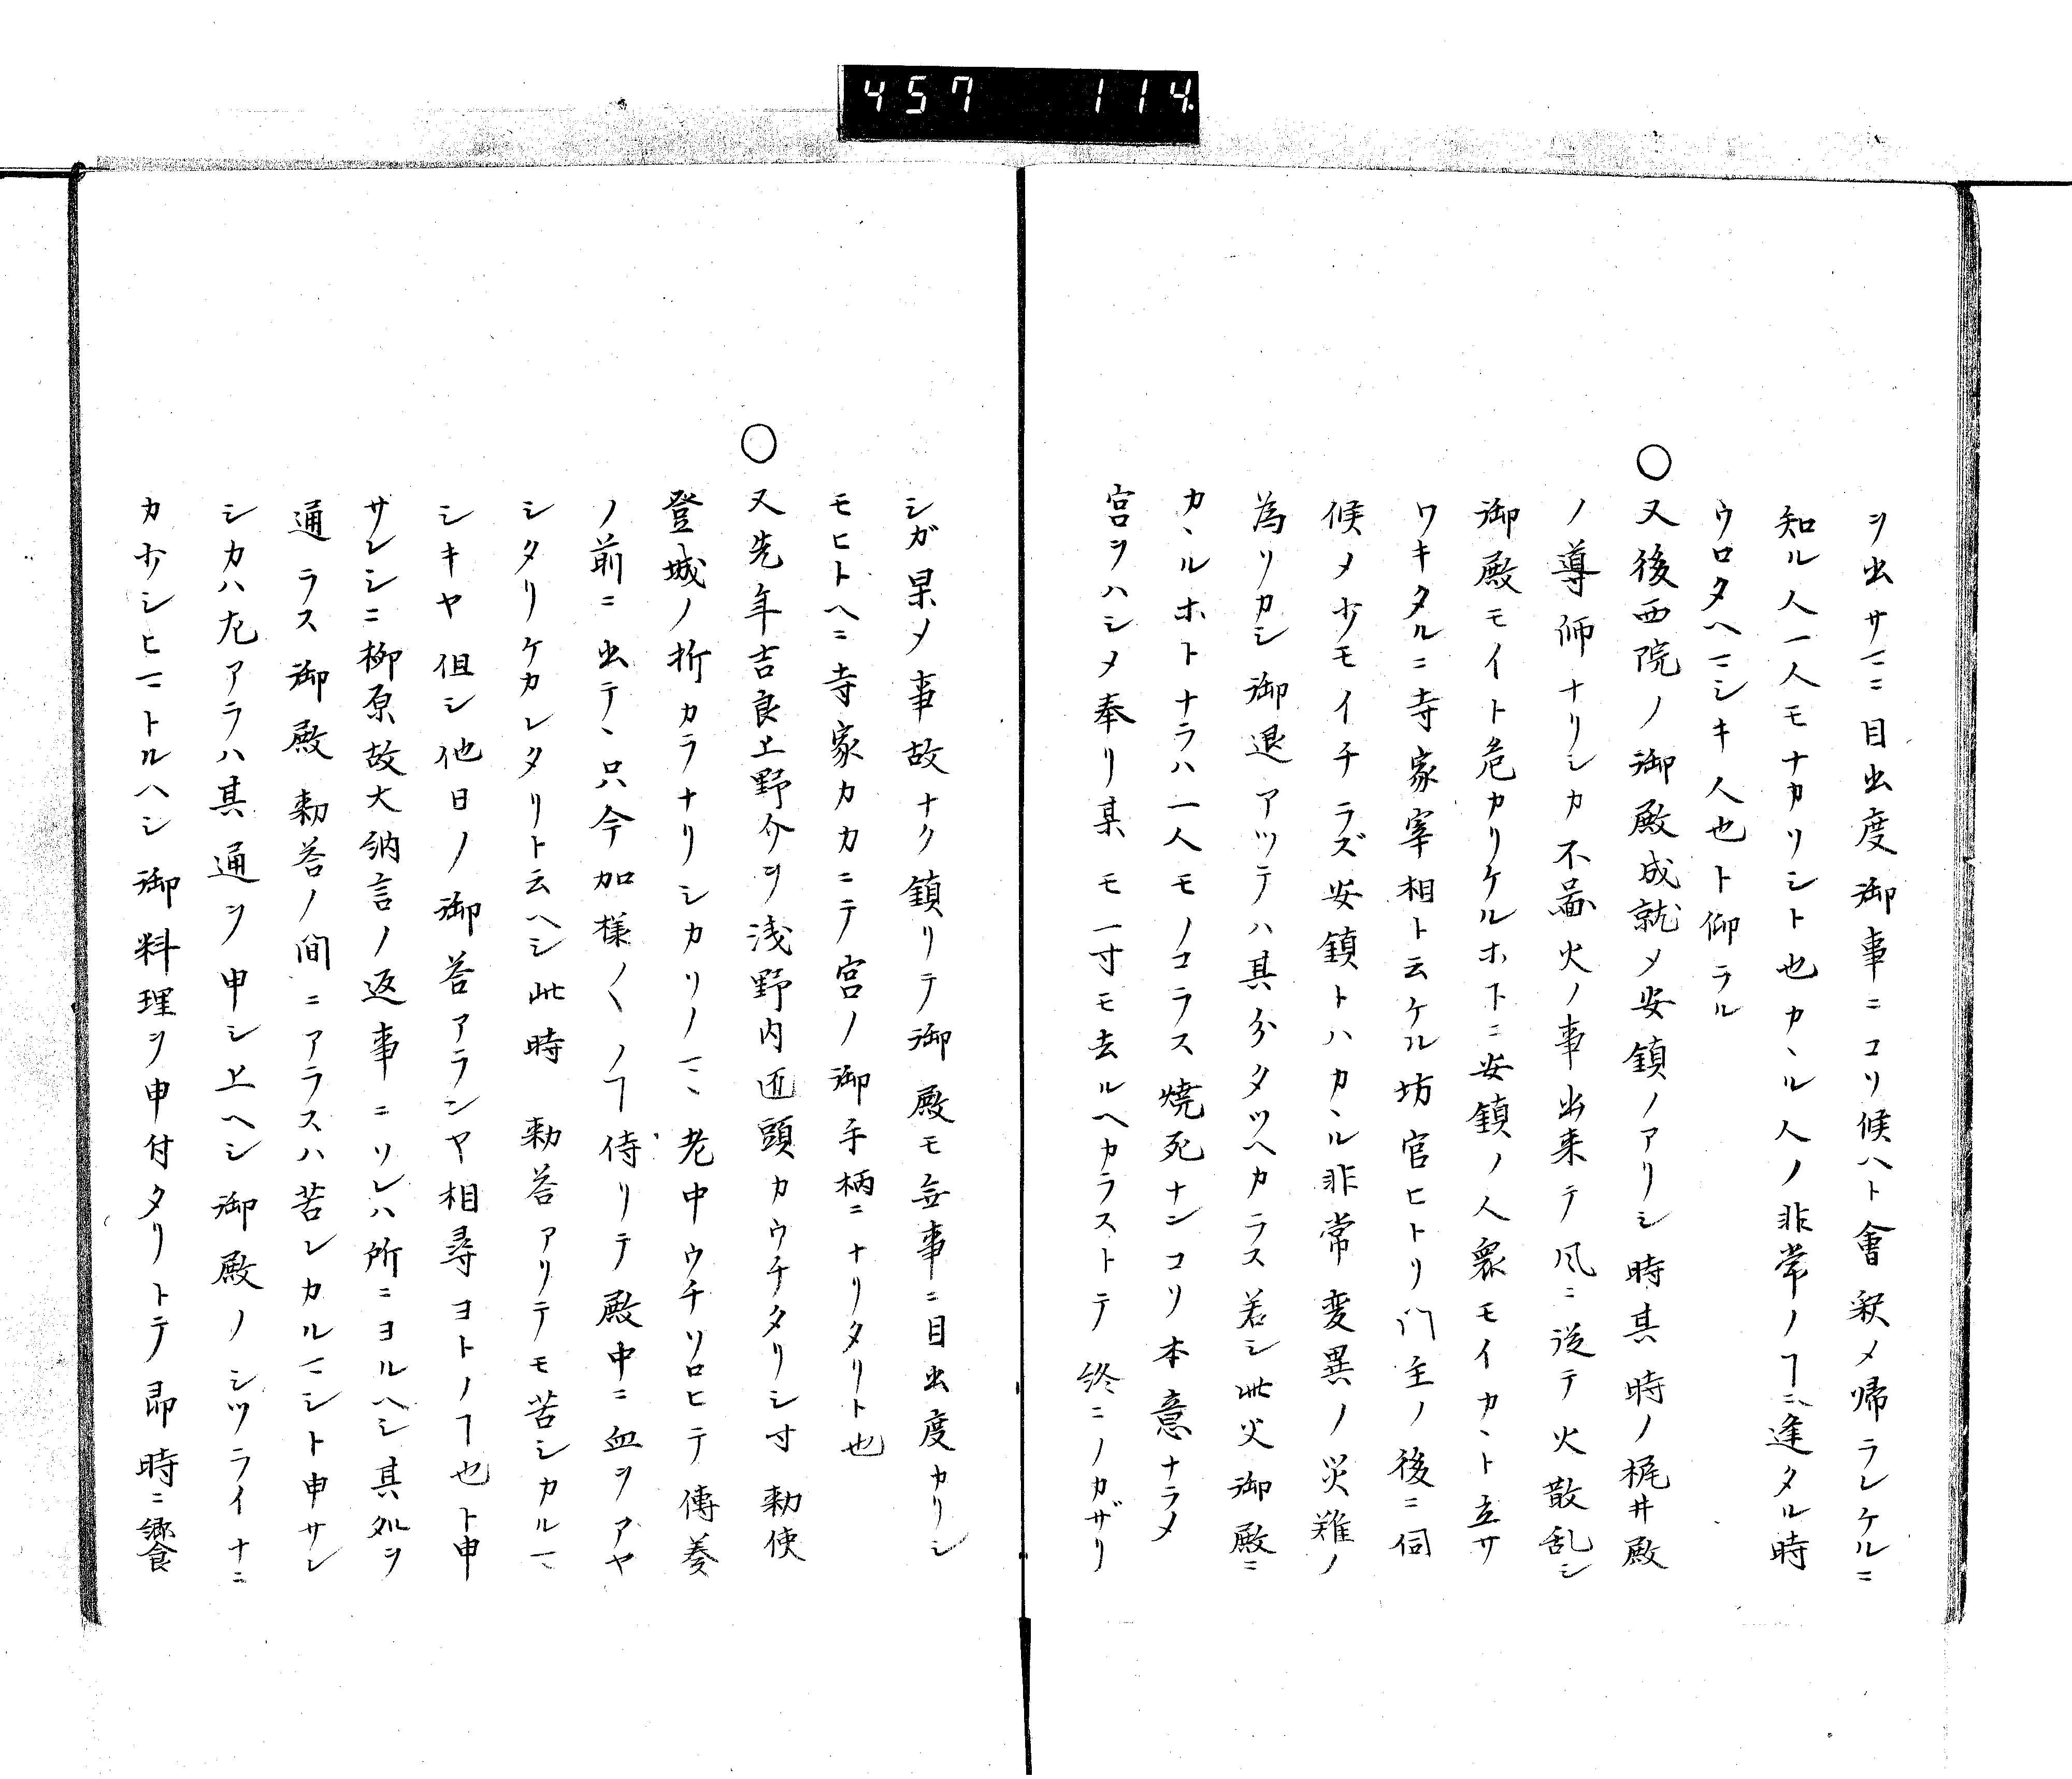 457 114.
ヲ出サヽニ目出度御事ニコソ候ヘト會釈メ帰ラレケルニ
知ル人一人モナカリシト也カヽル人ノ非常ノヿニ逢タル時
ウロタヘマシキ人也ト仰ラル
〇又後西院ノ御殿成就メ安鎮ノアリシ時其時ノ梶井殿
ノ導師ナリシカ不啚火ノ事出来テ風ニ従テ火散乱シ
御殿モイト危カリケルホトニ安鎮ノ人衆モイカヽト立サ
ワキタルニ寺家宰相ト云ケル坊官ヒトリ门主ノ後ニ伺
候メ少モイチラズ安鎮トハカヽル非常変異ノ災難ノ
為ソカシ御退アツテハ其分タツヘカラス若シ此火御殿ニ
カヽルホトナラハ一人モノコラス焼死ナンコソ本意ナラメ
宮ヲハシメ奉リ某モ一寸モ去ルヘカラストテ終ニノカザリ
シガ果メ事故ナク鎮リテ御殿モ無事ニ目出度カリシ
モヒトヘニ寺家カカニテ宮ノ御手柄ニナリタリト也
〇又先年吉良上野介ヲ浅野内匠頭カウチタリシ寸勅使
登城ノ折カラナリシカソノマヽ老中ウチソロヒテ傳奏
ノ前ニ出テヽ只今加様〱ノヿ侍リテ殿中ニ血ヲアヤ
シタリケカレタリト云ヘシ此時勅答アリテモ苦シカルマ
シキヤ但シ他日ノ御答アランヤ相尋ヨトノヿ也ト申
サレシニ柳原故大納言ノ返事ニソレハ所ニヨルヘシ其処ヲ
通ラス御殿勅答ノ間ニアラスハ苦シカルマシト申サレ
シカハ尤アラハ其通ヲ申シ上ヘシ御殿ノシツライナニ
カ少シヒマトルヘシ御料理ヲ申付タリトテ即時ニ饗